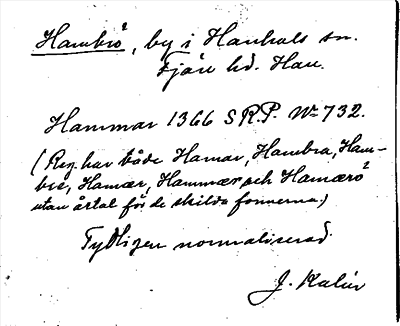 Hambrö, by i Hanhals sn.
Fjäre hd. Hall.
Hammar 1366 SRP. No 732.
(Reg. har både Hamar, Hambra, Ham-
bre, Hamær, Hammær och Hamærö
utan årtal för de skilda formerna.)
Tydligen normaliserad.
J. Kalén